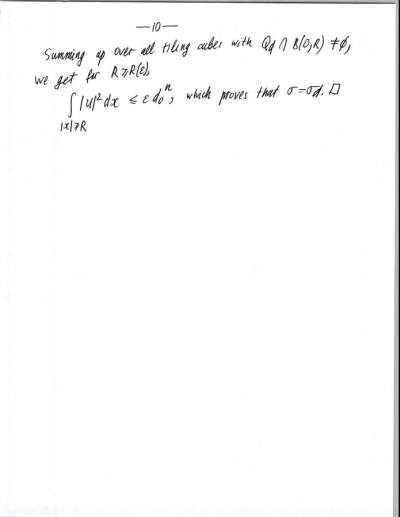 —10—
Summing up over all tiling cubes with Q_d ∩ B(0,R) ≠ ∅,
we get for R ≥ R(ε),
∫_{|x|≥R} |u|² dx ≤ ε d₀ⁿ, which proves that σ = σ_d. □